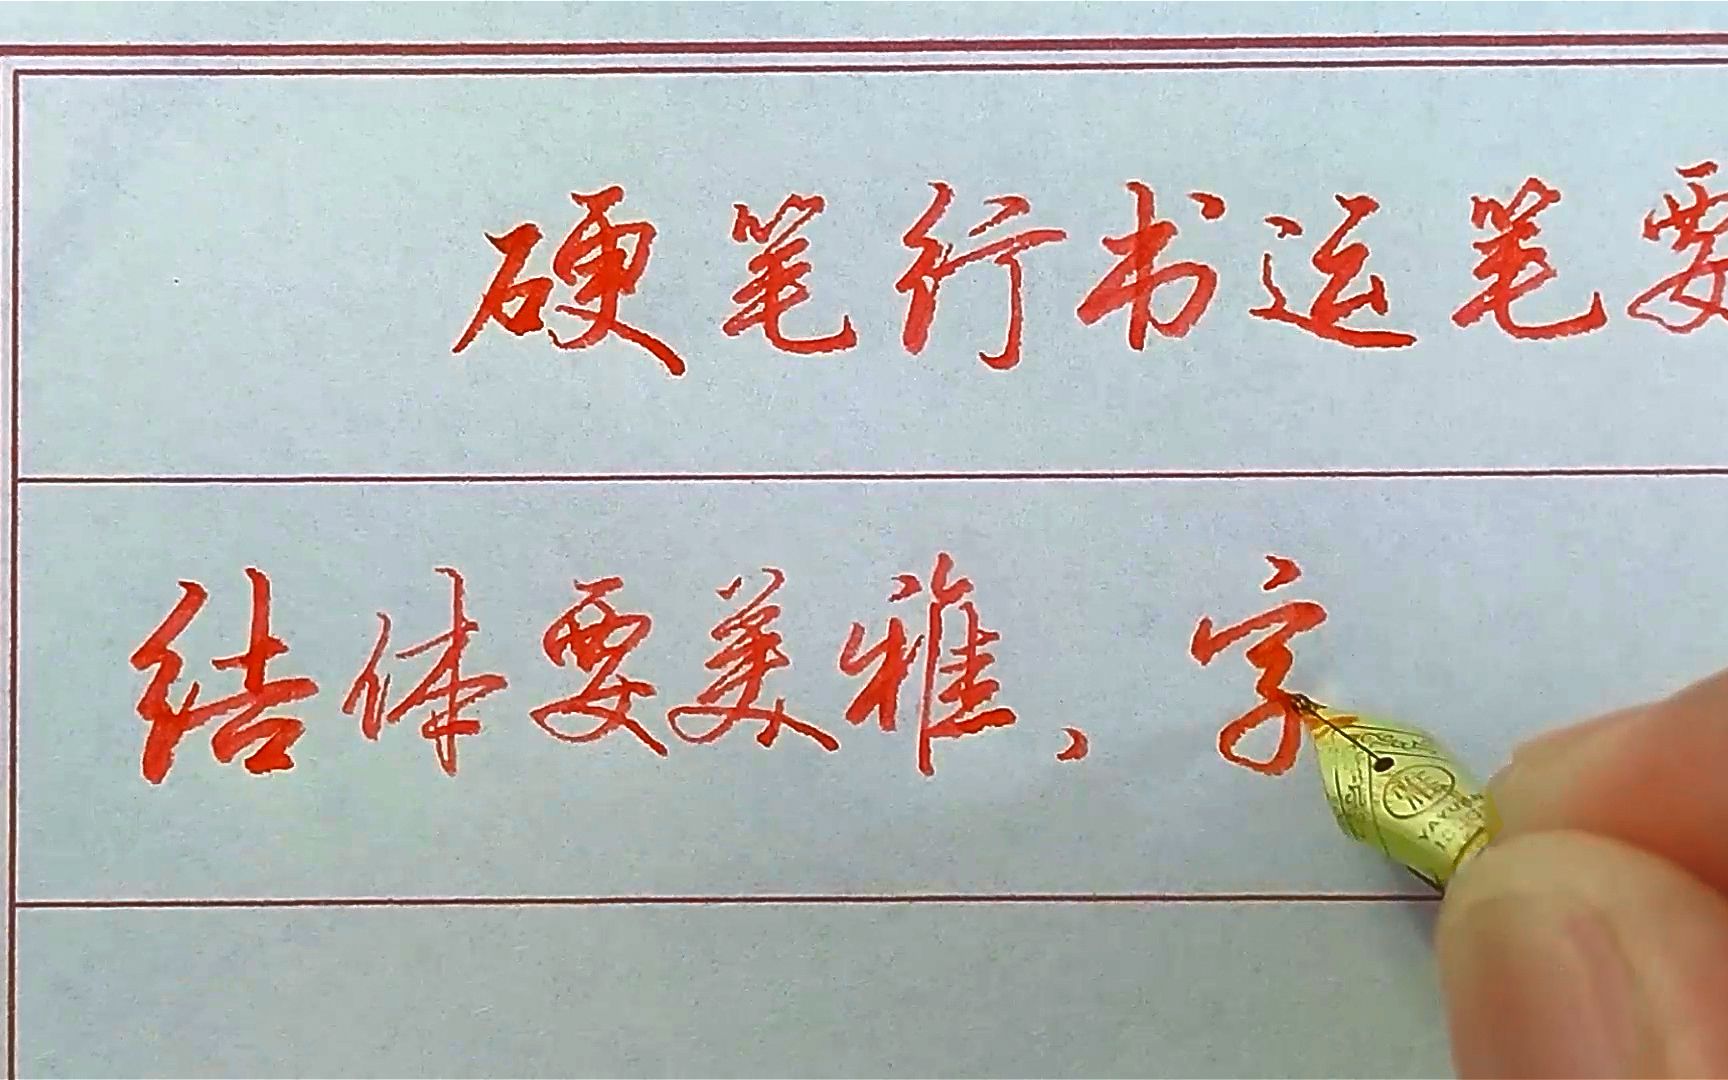 硬笔行书运笔要
结体要美雅、字